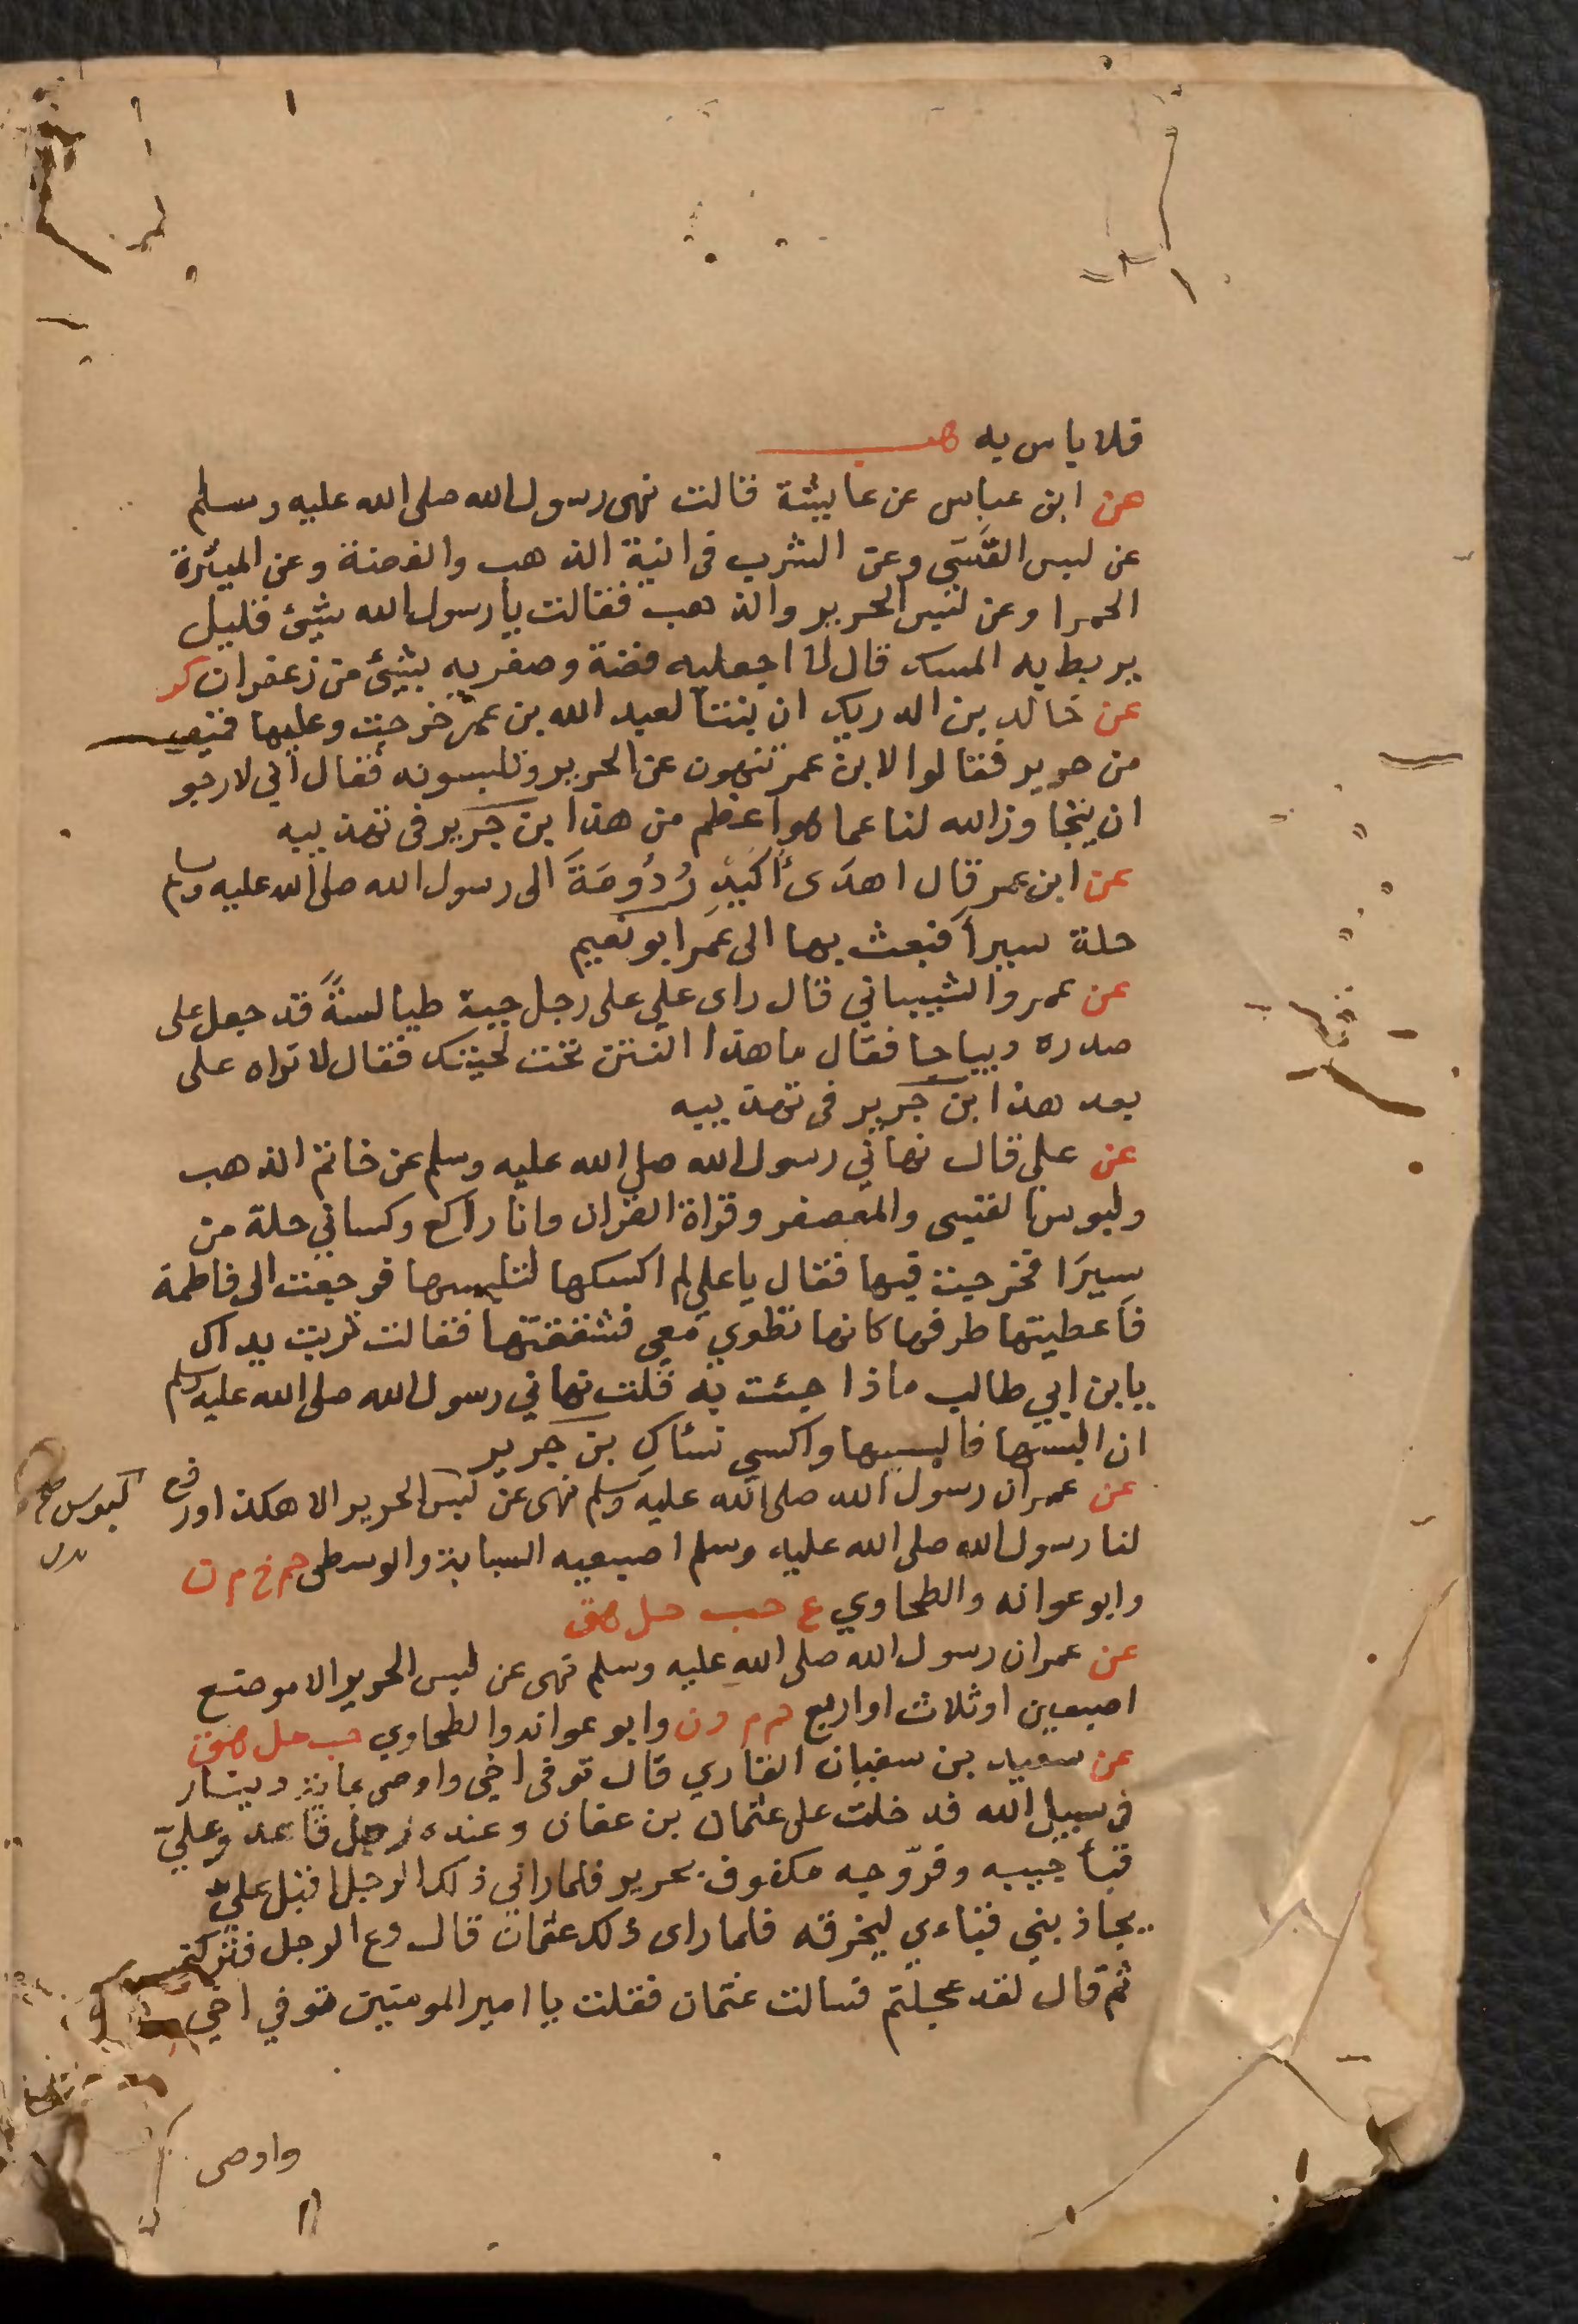 فلا باس به هب
عن ابن عباس عن عايشة قالت نهى رسول الله صلى الله عليه وسلم
عن لبس القسي وعن الشرب في انية الذهب والفضة وعن الميثرة
الحمرا وعن لبس الحرير والذهب فقالت يا رسول الله شيئ قليل
يربط به المسك قال لا اجعليه فضة وصفريه بشيئ من زعفران كر
عن خالد بن الدريك ان بنتا لعبد الله بن عمر خرجت وعليها قميص
من حرير فقالوا لابن عمر تنهون عن الحرير وتلبسونه فقال اني لارجو
ان يتجاوز الله لنا عما هو اعظم من هذا ابن جرير في تهذيبه
عن ابن عمر قال اهدى أكيد دُومَةَ الى رسول الله صلى الله عليه وسلم
حلة سيرأ فبعث بها الى عمر ابو نعيم
عن عمرو الشيباني قال راى علي على رجل جبة طيالسةً قد جعل على
صدره ديباجا فقال ما هذا النتن تحت لحيتك فقال لا تراه على
بعد هذا ابن جرير في تهذيبه
عن علي قال نهاني رسول الله صلى الله عليه وسلم عن خاتم الذهب
ولبوس القسي والمعصفر وقراة القران وانا راكع وكساني حلة من
سيرَا فخرجت فيها فقال يا علي لم اكسكها لتلبسها فرجعت الى فاطمة
فاعطيتها طرفها كانها تطوي معي فشققتها فقالت تربت يداك
يا بن ابي طالب ماذا جئت به قلت نهاني رسول الله صلى الله عليه وسلم
ان البسها فالبسيها واكسي نساك بن جرير
عن عمر ان رسول الله صلى الله عليه وسلم نهى عن لبس الحرير الا هكذا ورفع
لبوس
لنا رسول الله صلى الله عليه وسلم اصبعيه السبابة والوسطى حم خ م ن
وابو عوانه والطحاوي ع حب حل هق
عن عمر ان رسول الله صلى الله عليه وسلم نهى عن لبس الحرير الا موضع
اصبعين او ثلاث او اربع حم م د ن وابو عوانه والطحاوي حب حل هق
عن سعيد بن سفيان القاري قال توفى اخي واوصى بماية دينار
في سبيل الله فدخلت على عثمان بن عفان وعنده رجل قاعد وعليّ
قبأ جيبه وفرّوجه مكفوف بحرير فلما راني ذلك الرجل اقبل عليّ
يجاذبني قباءي ليخرقه فلما راى ذلك عثمان قال دع الرجل فتركني
ثم قال لقد عجلتم فسالت عثمان فقلت يا امير المومنين توفي اخي
واوصى